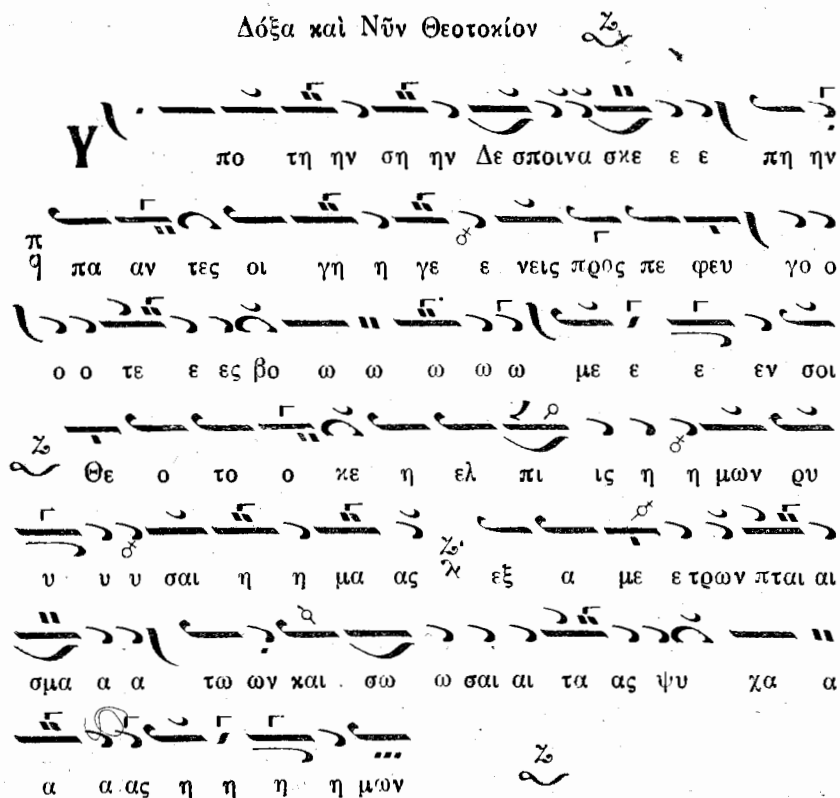 Δόξα καὶ Νῦν Θεοτοκίον
Υ πο τη ην ση ην Δε σποινα σκε ε ε πη ην
πα αν τες οι γη η γε ε νεις προς πε φευ γο ο
ο ο τε ε ες βο ω ω ω ω ω με ε ε εν σοι
Θε ο το ο κε η ελ πι ις η η μων ρυ
υ υ υ σαι η η μα ας εξ α με ε τρων πται αι
σμα α α τω ων και σω ω σαι αι τα ας ψυ χα α
α α ας η η η η μων